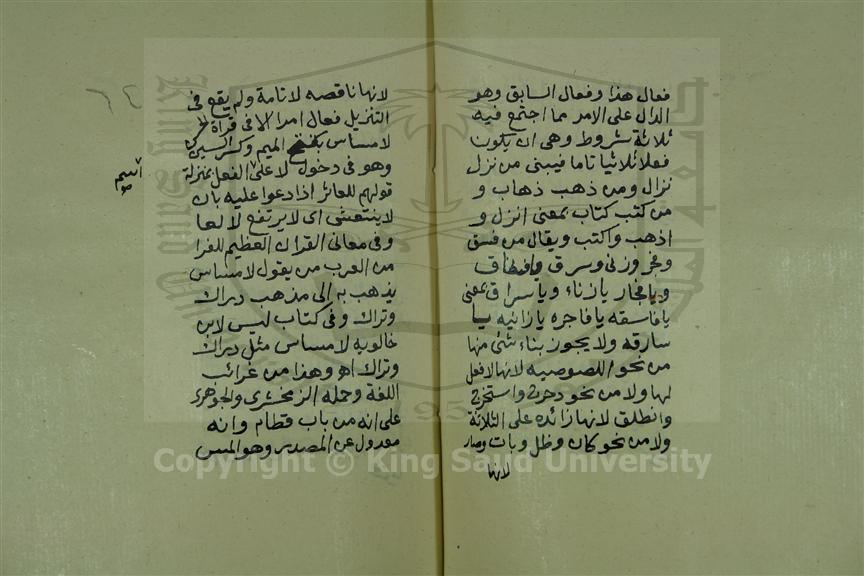 فعال هذا وفعال السابق وهو
الدال على الامر مما اجتمع فيه
ثلاثة شروط وهى ان يكون
فعلا ثلاثيا تاما فيبنى من نزل
نزال ومن ذهب ذهاب و
من كتب كتاب بمعنى انزل و
اذهب واكتب ويقال من فسق
وفجر وزنى وسرق يافساق
ويافجار يازناء وياسراق بمعنى
يافاسقه يافاجره يازانيه يا
سارقه ولا يجوز بناء شئ منها
من نحو اللصوصيه لانها لا فعل
لها ولا من نحو دحرج واستخرج
وانطلق لانها زائده على الثلاثة
ولا من نحو كان وظل وبات وصار
لانها
٦٤
لانها ناقصه لا تامة ولم يقع فى
التنزيل فعال امرا الا فى قراة
لا مساس بفتح الميم وكسر السين
وهو فى دخول لا على الفعل بمنزلة
اسم
قولهم للعاثر اذا دعوا عليه بان
لا ينتعش اى لا يرتفع لا لعا
وفى معانى القران العظيم للفرا
من العرب من يقول لا مساس
يذهب به الى مذهب دراك
وتراك وفى كتاب ليس لابن
خالويه لا مساس مثل دراك
وتراك اه وهذا من غرائب
اللغة وحمله الزمخشرى والجوهرى
على انه من باب قطام وانه
معدول عن المصدر وهو المس
Copyright © King Saud University
1957